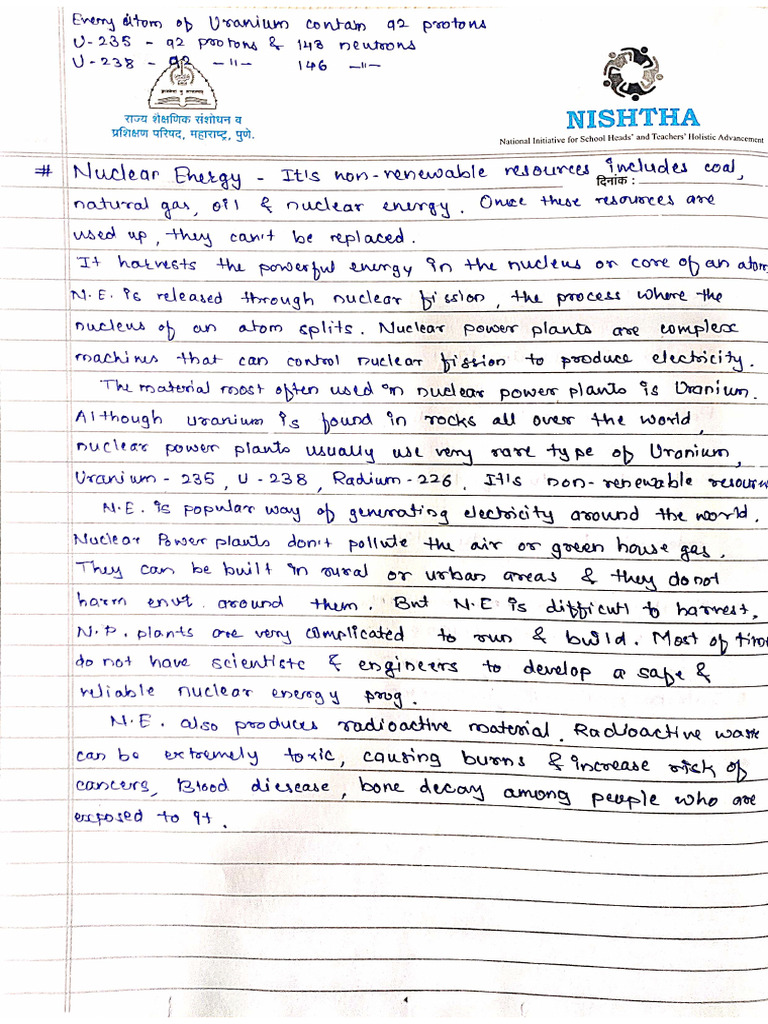 Enery atom of Uranium contain 92 protons
U-235 - 92 protons & 143 neutrons
U-238 - 92 -"- 146 -"-
राज्य शैक्षणिक संशोधन व
प्रशिक्षण परिषद, महाराष्ट्र, पुणे.
NISHTHA
National Initiative for School Heads' and Teachers' Holistic Advancement
# Nuclear Energy - It's non-renewable resources includes coal,
दिनांक :
natural gas, oil & nuclear energy. Once these resources are
used up, they can't be replaced.
It harvests the powerful energy in the nucleus or core of an atom
N.E. is released through nuclear fission, the process where the
nucleus of an atom splits. Nuclear power plants are complex
machines that can control nuclear fission to produce electricity.
The material most often used in nuclear power plants is Uranium.
Although uranium is found in rocks all over the world,
nuclear power plants usually use very rare type of Uranium,
Uranium - 235, U - 238, Radium - 226. It's non-renewable resour
N.E. is popular way of generating electricity around the world.
Nuclear Power plants don't pollute the air or green house gas.
They can be built in rural or urban areas & they do not
harm envt. around them. But N.E is difficult to harvest.
N.P. plants are very complicated to run & build. Most of
do not have scientists & engineers to develop a safe &
reliable nuclear energy prog.
N.E. also produces radioactive material. Radioactive waste
can be extremely toxic, causing burns & increase risk of
cancers, Blood diesease, bone decay among people who are
exposed to it.